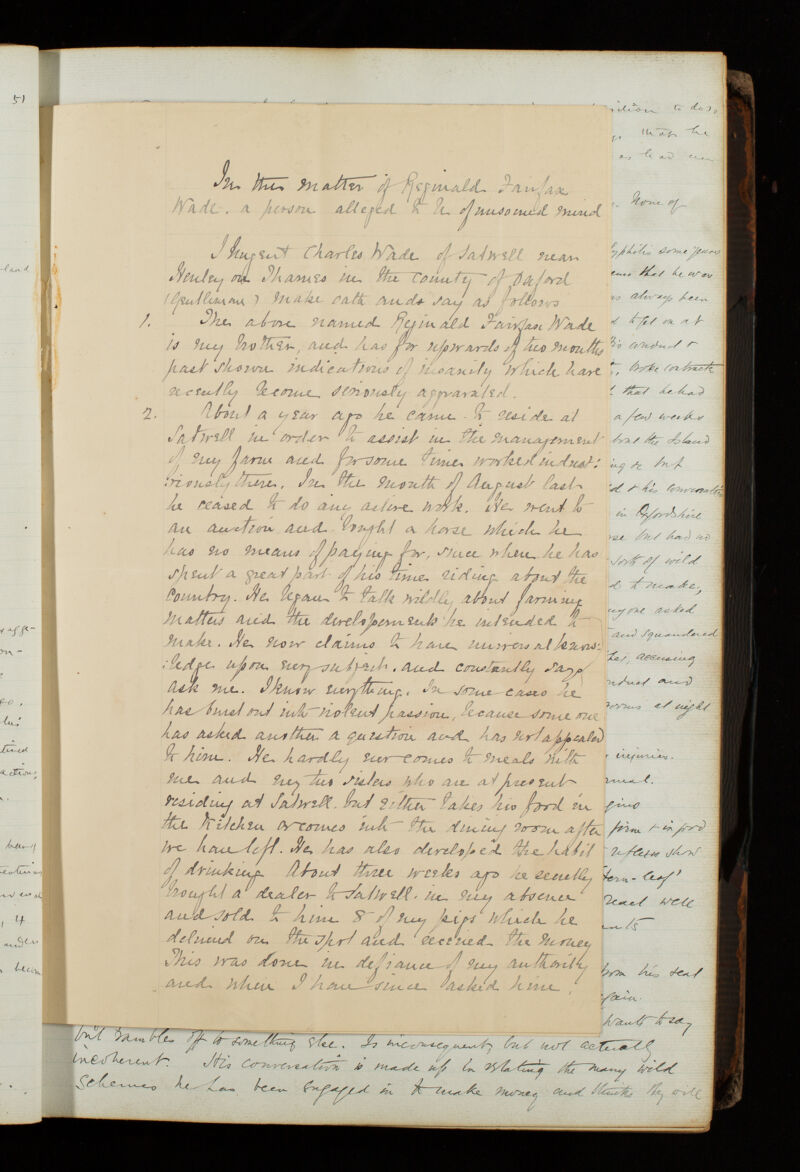 51
In the matter of Reginald Fairfax
Wade. a person alleged to be of unsound mind
I Nugent Charles Wade of Satwell near
Henley on Thames in the County of Oxford
(Gentleman) make oath and say as follows
1. The above named Reginald Fairfax Wade
is my brother, and has for upwards of two months
past shown indications of insanity which have
recently become seriously aggravated.
2. About a year ago he came to reside at
Satwell in order to assist in the management
of my farm and for some time worked indust:
:riously there. In the month of August last
he ceased to do any active work. He went to
an auction and bought a horse which he
has no means of paying for, since when he has
spent a great part of his time riding about the
country. He began to talk wildly about farming
matters and the developements he intended to
make. He now claims to have universal know:
:ledge upon every subject, and constantly says
ask me. I know everything. In some cases he
has burst out into violent passion, because some one
has asked another a question and has not appealed
to him. He hardly ever comes to meals with
me and my two sisters who are at present
residing at Satwell but either takes his food in
the kitchen or comes into the dining room after
we have left. He has also developed the habit
of drinking. About three weeks ago he secretly
brought a dealer to Satwell in my absence
and sold to him 8 of my pigs which he
delivered on the spot and received the money
This was done in defiance of my authority
and when I have since asked him
to do so
that he
None of
syphilis some years
that he was
always been
to get on at
his conduct &
broke contracts
that he had
a few weeks
the Island
but
& his conversation
in Oxfordshire
but had no
sorts of wild
to make,
anyone asked
and squandered
accusing
conduct and
rooms at night
injuries.
firm & in good
reflexes show
fern-leaf
react well
from his seat
again.
wants to say
but rambles off to something else. Is inconsequent, but not actually
incoherent. His conversation is made up in relating the many wild
schemes he has been engaged in to make money and thinks they will